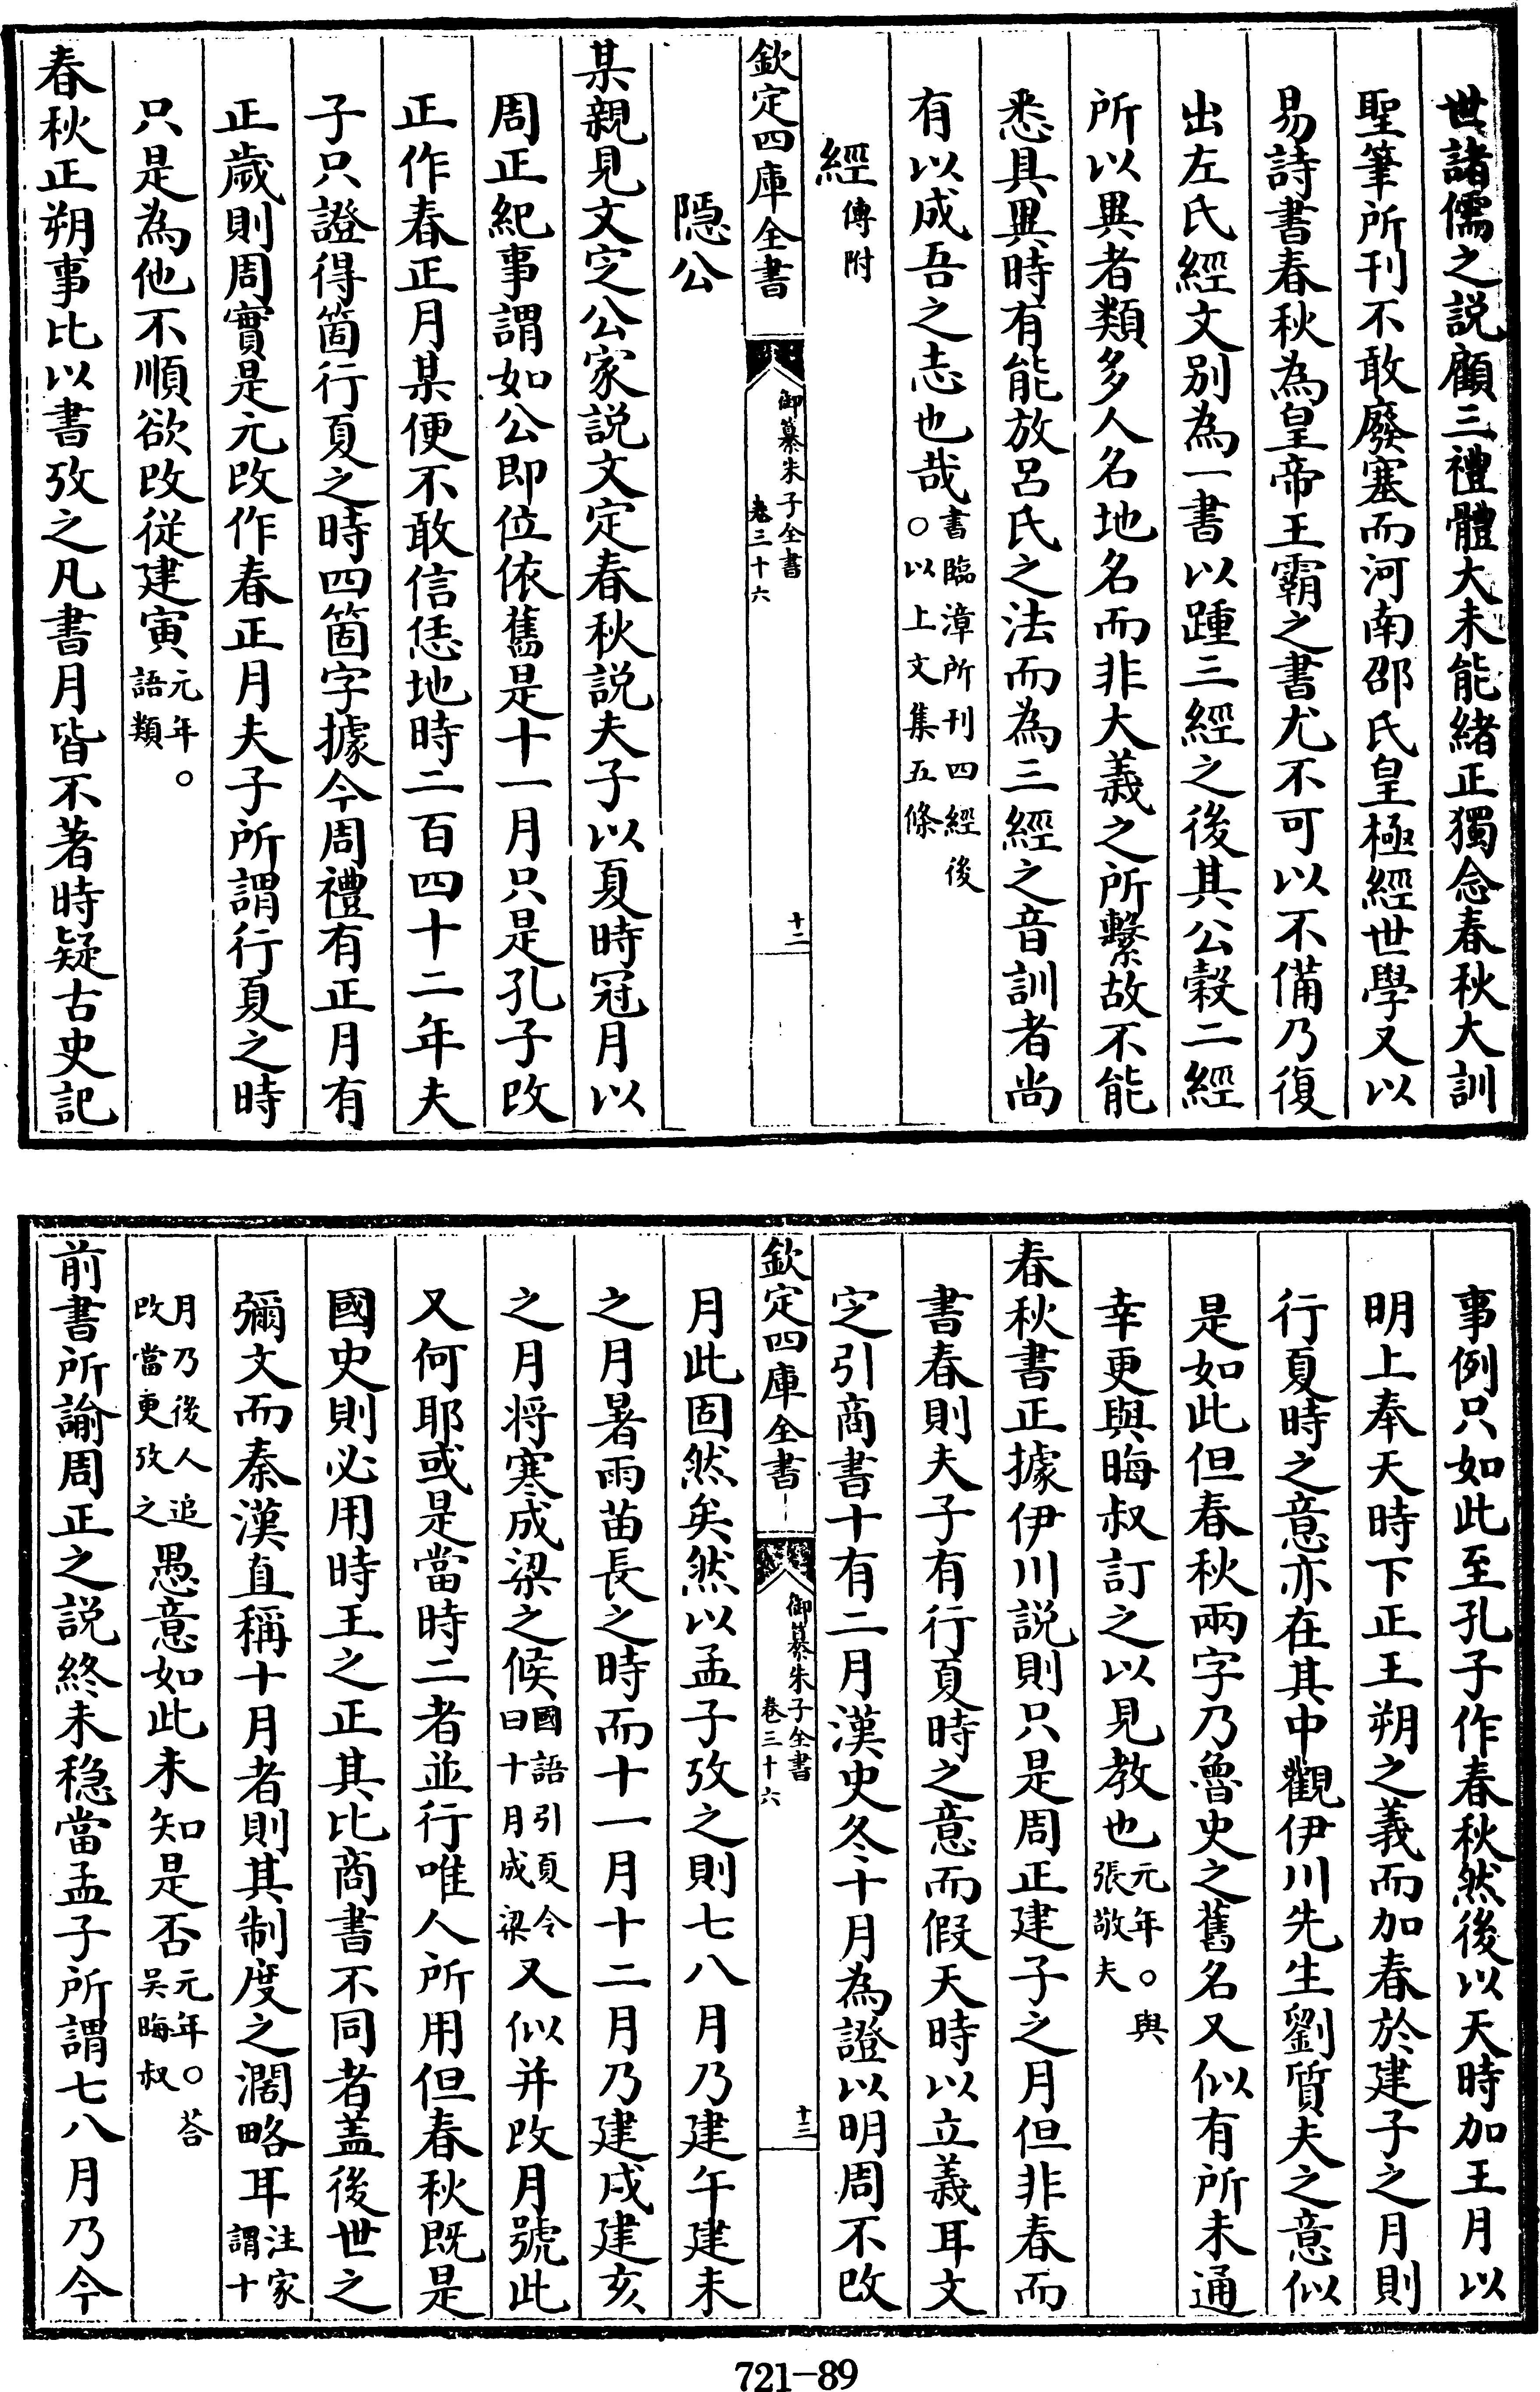 世諸儒之説顧三禮體大未能緒正獨念春秋大訓
聖筆所刊不敢廢塞而河南邵氏皇極經世學又以
易詩書春秋為皇帝王霸之書尤不可以不備乃復
出左氏經文别為一書以踵三經之後其公榖二經
所以異者類多人名地名而非大義之所繫故不能
悉具異時有能放呂氏之法而為三經之音訓者尚
有以成吾之志也哉書臨漳所刊四經後○以上文集五條
經傳附
欽定四庫全書
御纂朱子全書
卷三十六
十二
隱公
某親見文定公家説文定春秋説夫子以夏時冠月以
周正紀事謂如公即位依舊是十一月只是孔子改
正作春正月某便不敢信恁地時二百四十二年夫
子只證得箇行夏之時四箇字據今周禮有正月有
正歲則周實是元改作春正月夫子所謂行夏之時
只是為他不順欲改従建寅元年○語類
春秋正朔事比以書攷之凡書月皆不著時疑古史記
事例只如此至孔子作春秋然後以天時加王月以
明上奉天時下正王朔之義而加春於建子之月則
行夏時之意亦在其中觀伊川先生劉質夫之意似
是如此但春秋兩字乃魯史之舊名又似有所未通
幸更與晦叔訂之以見教也元年○與張敬夫
春秋書正據伊川説則只是周正建子之月但非春而
書春則夫子有行夏時之意而假天時以立義耳文
定引商書十有二月漢史冬十月為證以明周不改
欽定四庫全書
御纂朱子全書
卷三十六
十三
月此固然矣然以孟子攷之則七八月乃建午建未
之月暑雨苗長之時而十一月十二月乃建戌建亥
之月将寒成梁之候國語引夏令曰十月成梁又似并改月號此
又何耶或是當時二者並行唯人所用但春秋既是
國史則必用時王之正其比商書不同者盖後世之
彌文而秦漢直稱十月者則其制度之濶略耳注家謂十
月乃後人追改當更攷之愚意如此未知是否元年○荅吴晦叔
前書所諭周正之説終未稳當孟子所謂七八月乃今
721-89